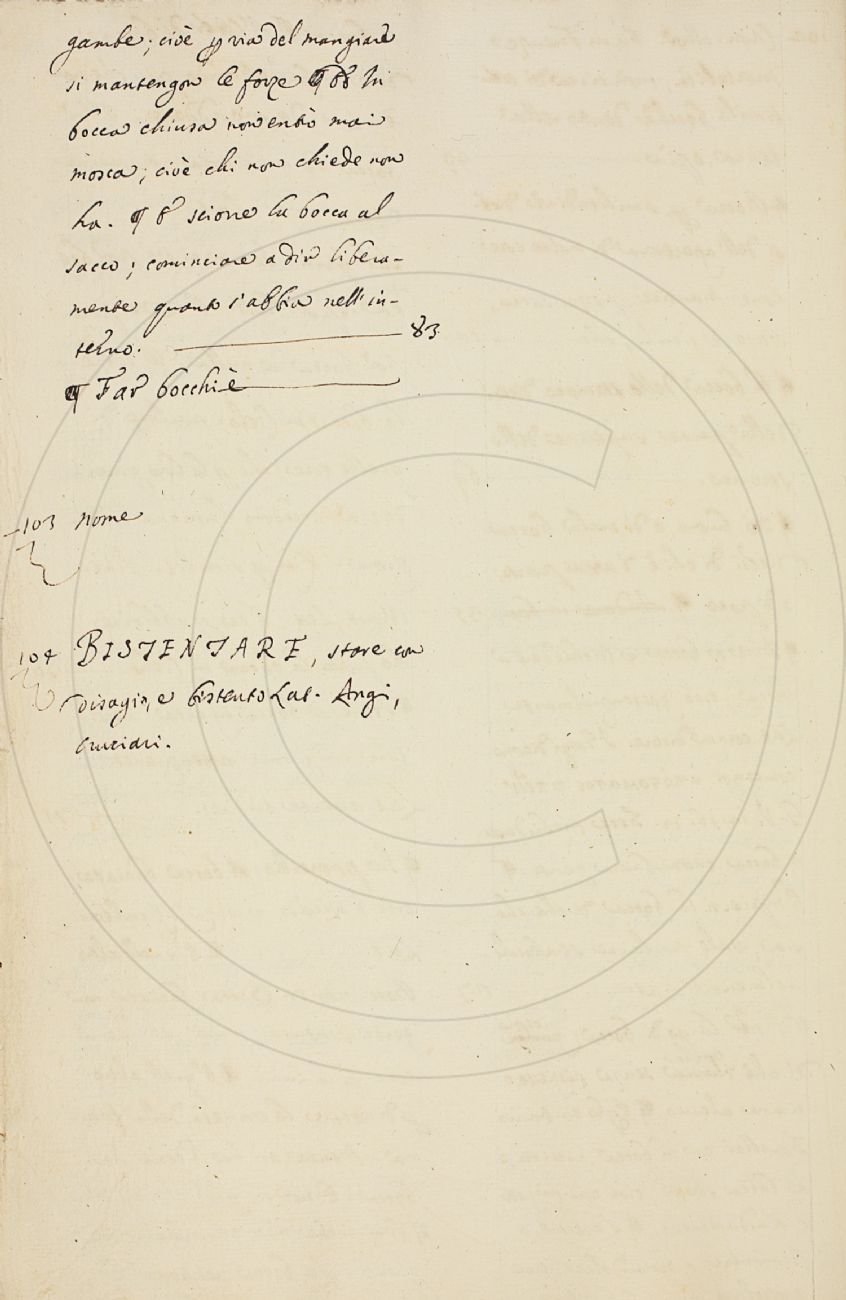 gambe; cioè p via del mangiare
si mantengon le forze ¶ 88 In
bocca chiusa non entrò mai
mosca; cioè chi non chiede non
ha. ¶ 8 sciorre la bocca al
sacco; cominciare a dir libera-
mente quanto s'abbia nell'in-
terno. 83
¶ Far bocchi è
103 nome
104 BISTENTARE, stare con
disagio, e bistento Lat. Angi,
cruciari.